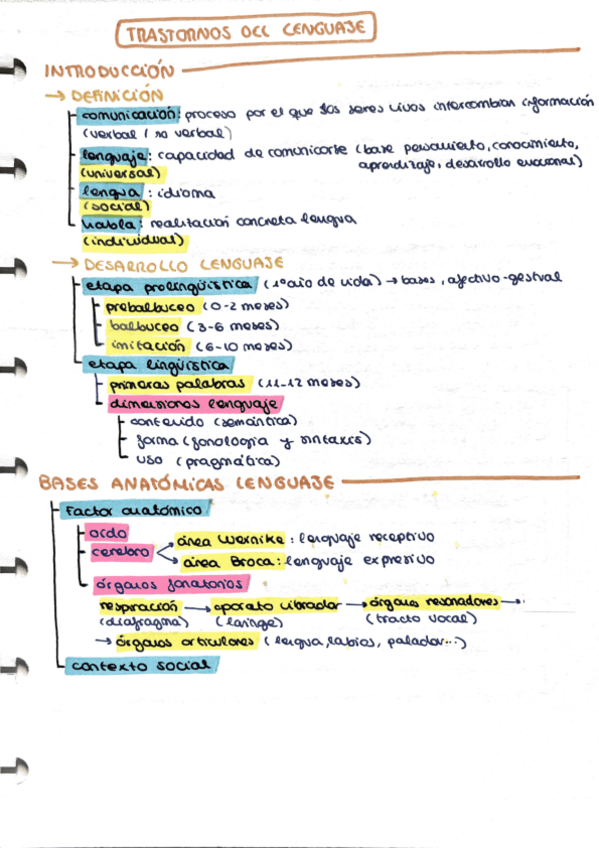 TRASTORNOS DEL LENGUAJE
INTRODUCCIÓN
→ DEFINICIÓN
comunicación: proceso por el que los seres vivos intercambian información
(verbal / no verbal)
lenguaje: capacidad de comunicarse (base pensamiento, conocimiento,
(universal) aprendizaje, desarrollo emocional)
lengua: idioma
(social)
habla: realización concreta lengua
(individual)
→ DESARROLLO LENGUAJE
etapa prelingüística (1º año de vida) → bases, afectivo-gestual
prebalbuceo (0-2 meses)
balbuceo (3-6 meses)
imitación (6-10 meses)
etapa lingüística
primeras palabras (11-12 meses)
dimensiones lenguaje
contenido (semántica)
forma (fonología y sintaxis)
uso (pragmática)
BASES ANATÓMICAS LENGUAJE
Factor anatómico
oído
cerebro
área Wernike: lenguaje receptivo
área Broca: lenguaje expresivo
órganos fonatorios
respiración → aparato vibrador → órganos resonadores →
(diafragma) (laringe) (tracto vocal)
→ órganos articulares (lengua, labios, paladar...)
contexto social